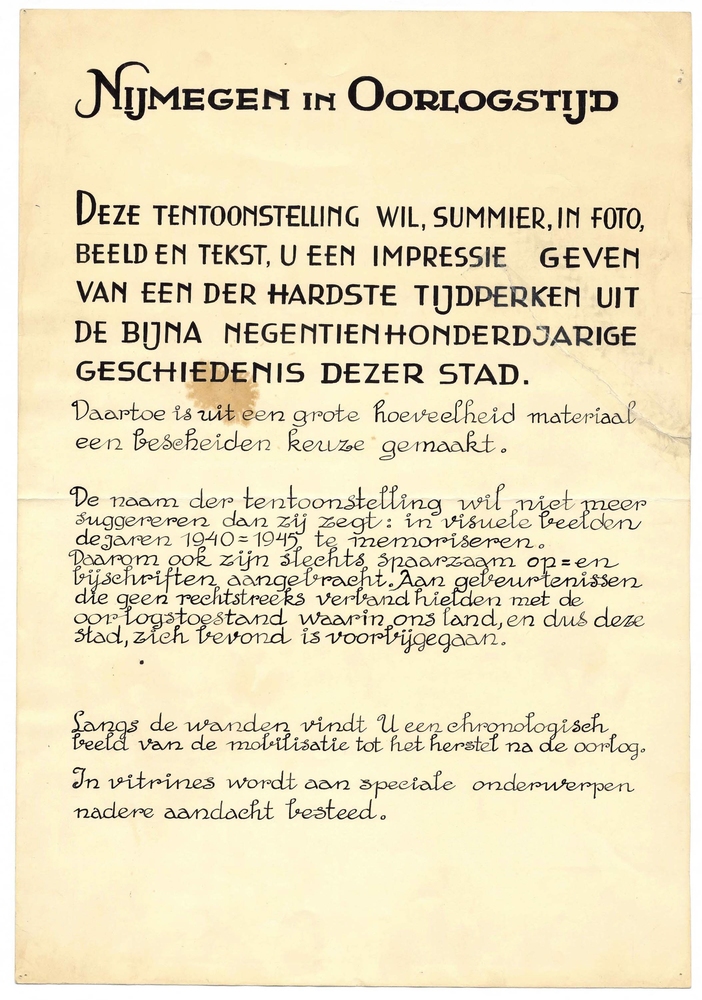 NIJMEGEN IN OORLOGSTIJD
DEZE TENTOONSTELLING WIL, SUMMIER, IN FOTO,
BEELD EN TEKST, U EEN IMPRESSIE GEVEN
VAN EEN DER HARDSTE TIJDPERKEN UIT
DE BIJNA NEGENTIENHONDERDJARIGE
GESCHIEDENIS DEZER STAD.
Daartoe is uit een grote hoeveelheid materiaal
een bescheiden keuze gemaakt.
De naam der tentoonstelling wil niet meer
suggereren dan zij zegt: in visuele beelden
de jaren 1940=1945 te memoriseren.
Daarom ook zijn slechts spaarzaam op=en
bijschriften aangebracht. Aan gebeurtenissen
die geen rechtstreeks verband hielden met de
oorlogstoestand waarin ons land, en dus deze
stad, zich bevond is voorbijgegaan.
Langs de wanden vindt U een chronologisch
beeld van de mobilisatie tot het herstel na de oorlog.
In vitrines wordt aan speciale onderwerpen
nadere aandacht besteed.